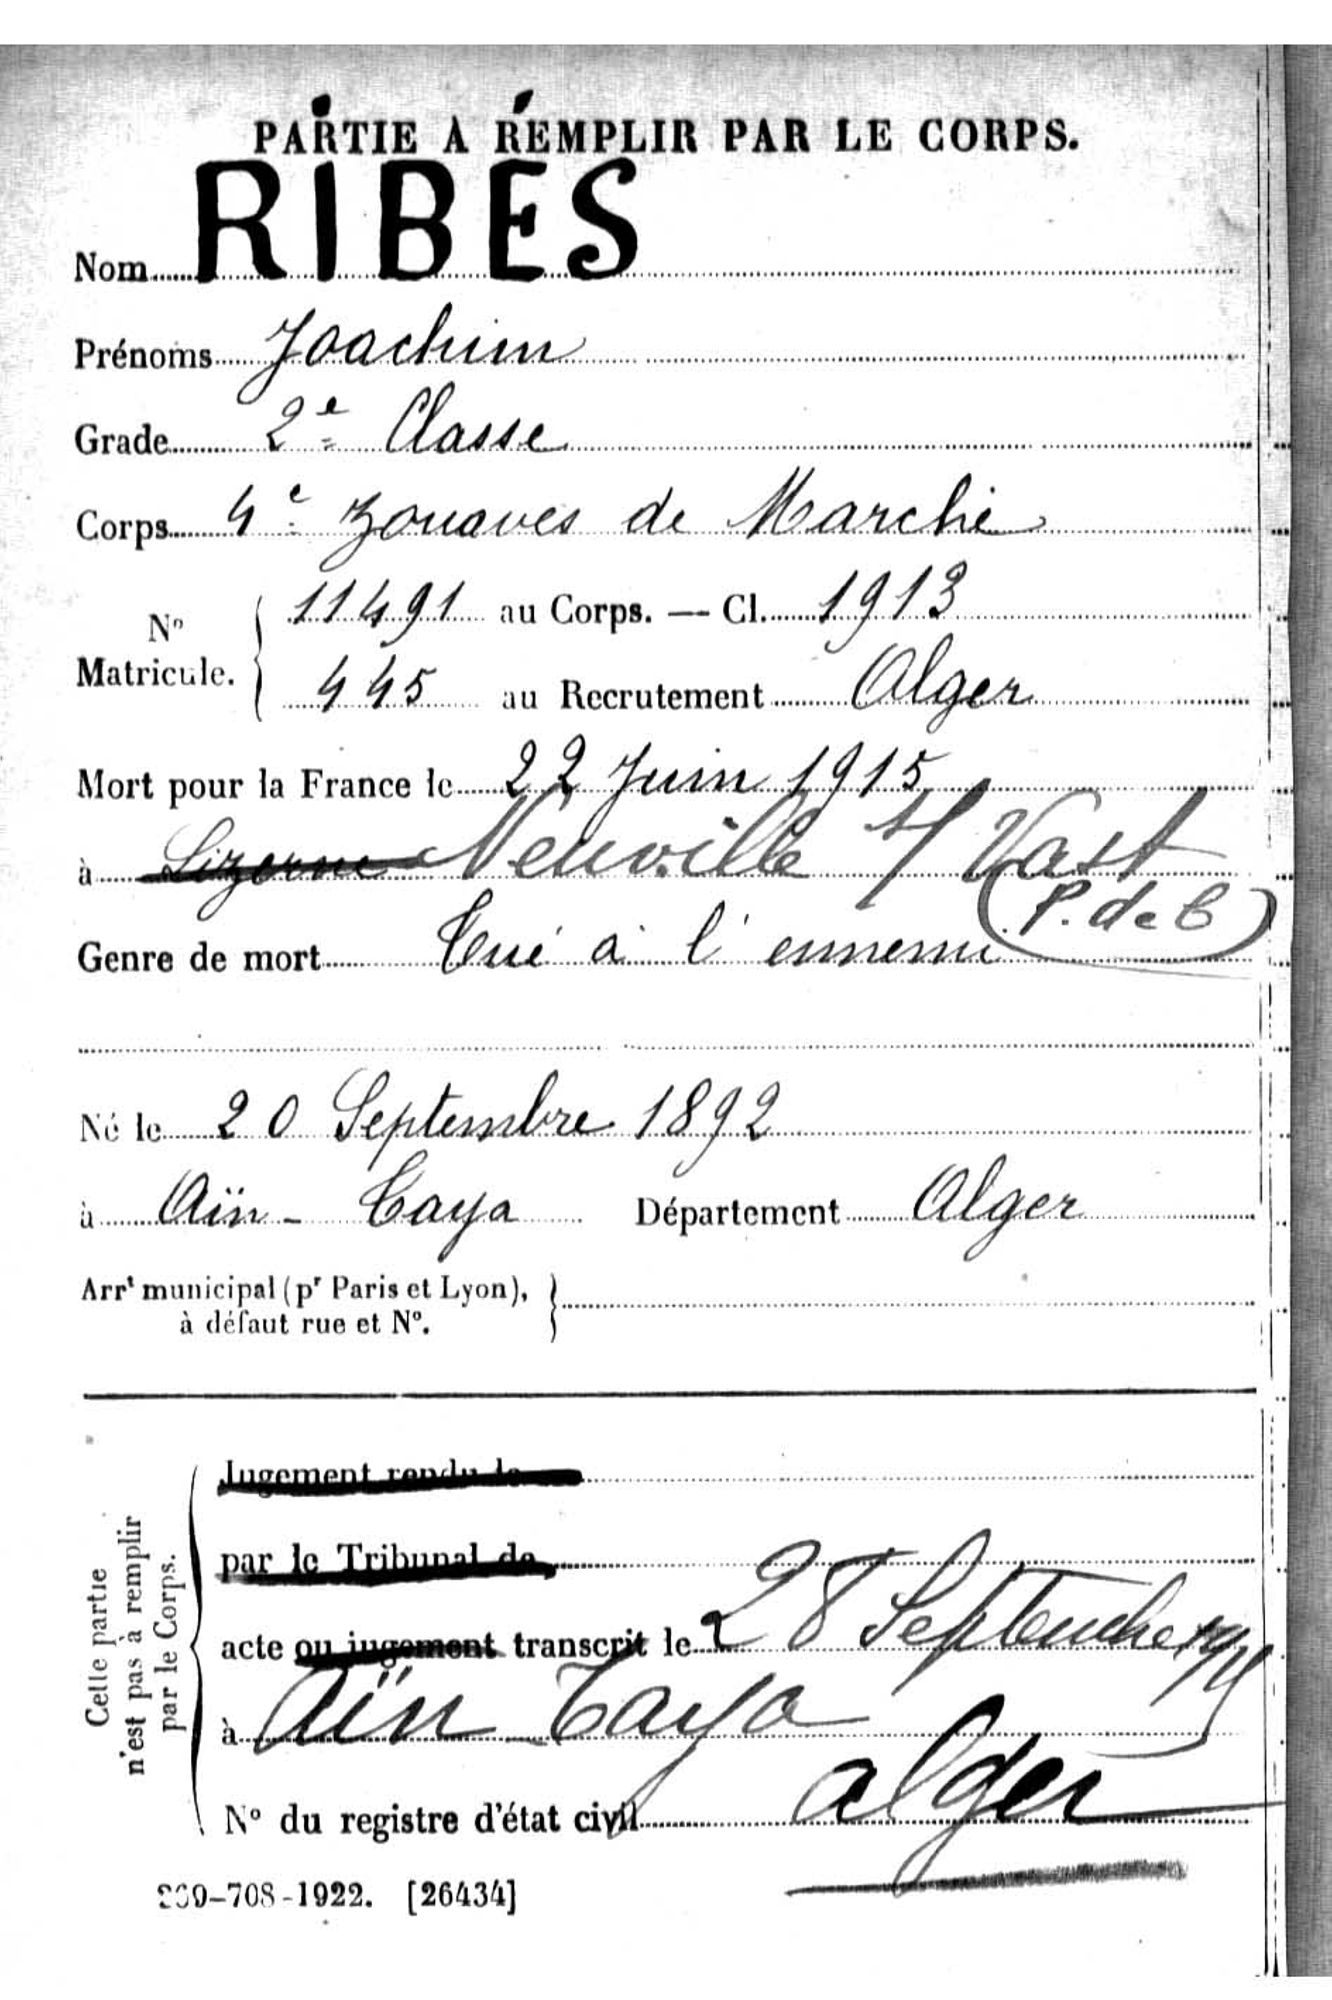 PARTIE A REMPLIR PAR LE CORPS.
Nom RIBES
Prénoms Joachim
Grade 2e Classe
Corps 4e Zouaves de Marche
No Matricule. { 11491 au Corps. — Cl. 1913
445 au Recrutement Alger
Mort pour la France le 22 Juin 1915
à Lizerne Neuville St Vast
(P. de C)
Genre de mort Tué à l'ennemi
Né le 20 Septembre 1892
à Aïn-Taya Département Alger
Arrt municipal (pr Paris et Lyon),
à défaut rue et No.
Cette partie
n'est pas à remplir
par le Corps.
Jugement rendu le
par le Tribunal de
acte ou jugement transcrit le 28 Septembre
à Aïn-Taya
Alger
No du registre d'état civil
-708-1922. [26434]